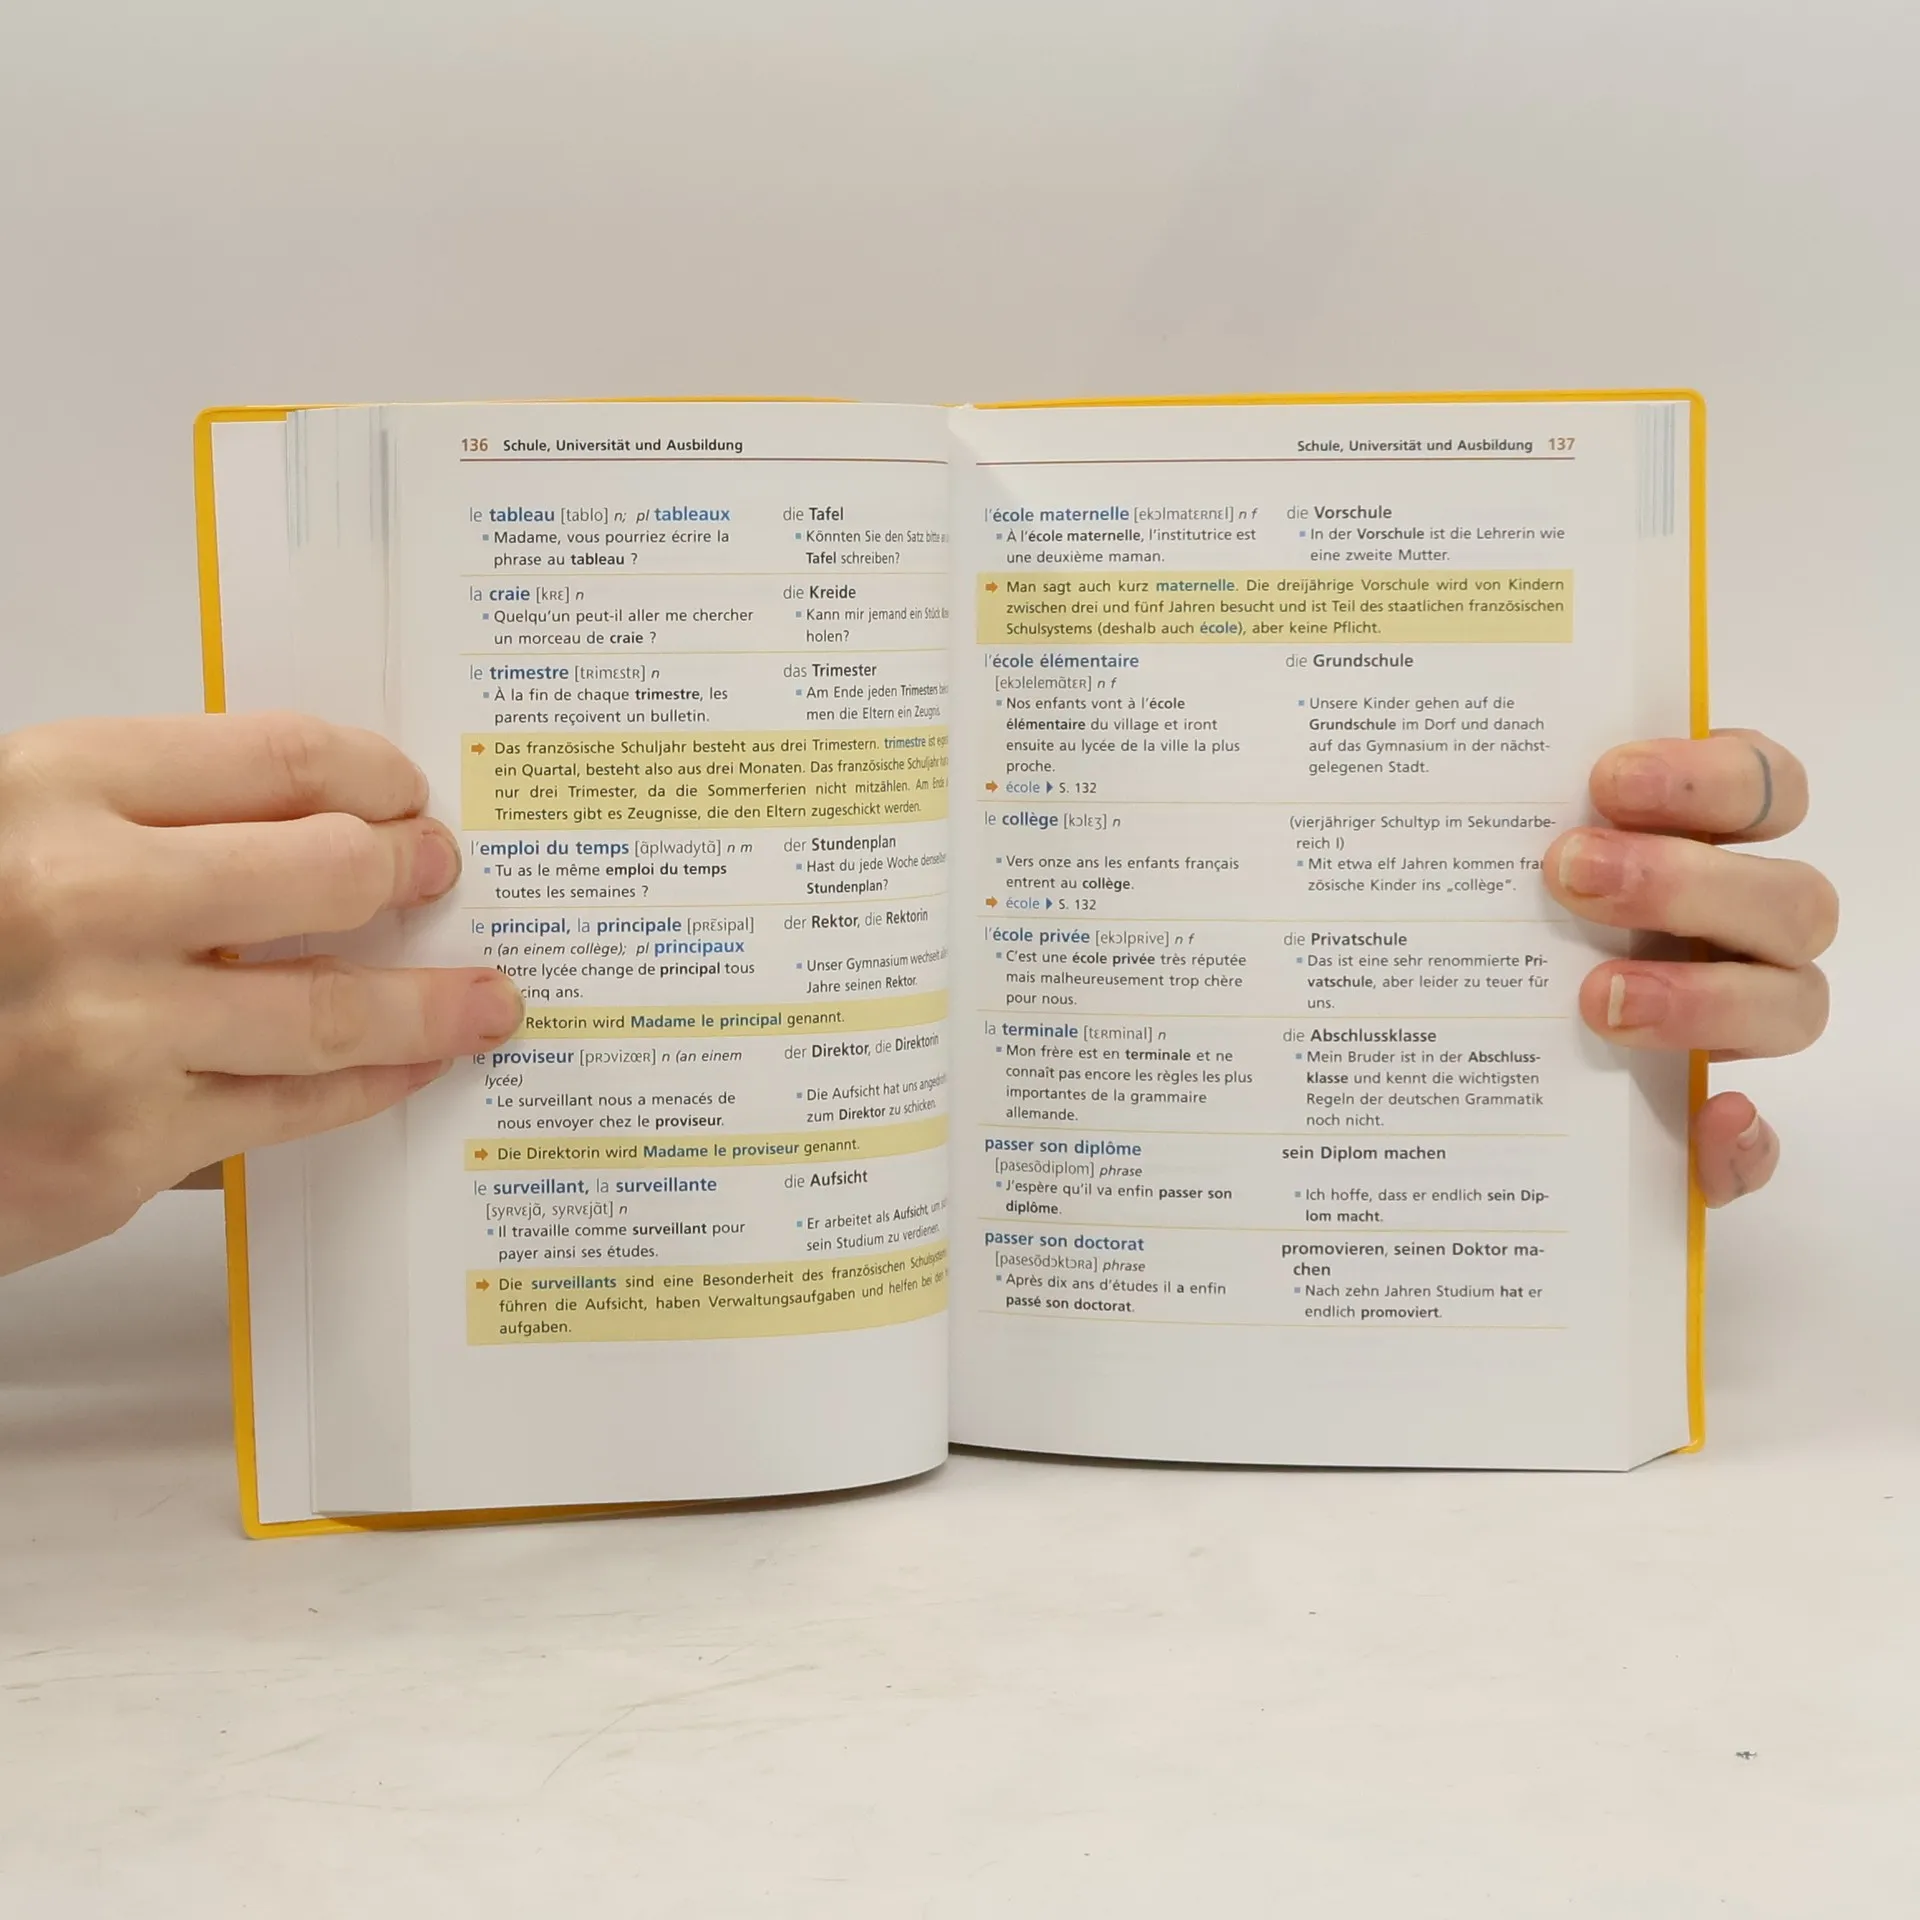 136 Schule, Universität und Ausbildung
le tableau [tablo] n; pl tableaux
▪ Madame, vous pourriez écrire la
phrase au tableau ?
die Tafel
▪ Könnten Sie den Satz bitte
Tafel schreiben?
la craie [kʀɛ] n
▪ Quelqu'un peut-il aller me chercher
un morceau de craie ?
die Kreide
▪ Kann mir jemand ein Stück
holen?
le trimestre [tʀimɛstʀ] n
▪ À la fin de chaque trimestre, les
parents reçoivent un bulletin.
das Trimester
▪ Am Ende jeden Trimesters
men die Eltern ein Zeugnis.
➡ Das französische Schuljahr besteht aus drei Trimestern. trimestre ist
ein Quartal, besteht also aus drei Monaten. Das französische Schuljahr
nur drei Trimester, da die Sommerferien nicht mitzählen. Am Ende
Trimesters gibt es Zeugnisse, die den Eltern zugeschickt werden.
l'emploi du temps [ɑ̃plwadytɑ̃] n m
▪ Tu as le même emploi du temps
toutes les semaines ?
der Stundenplan
▪ Hast du jede Woche denselben
Stundenplan?
le principal, la principale [pʀɛ̃sipal]
n (an einem collège); pl principaux
Notre lycée change de principal tous
cinq ans.
der Rektor, die Rektorin
▪ Unser Gymnasium wechselt
Jahre seinen Rektor.
Rektorin wird Madame le principal genannt.
le proviseur [pʀɔvizœʀ] n (an einem
lycée)
▪ Le surveillant nous a menacés de
nous envoyer chez le proviseur.
der Direktor, die Direktorin
▪ Die Aufsicht hat uns
zum Direktor zu schicken.
➡ Die Direktorin wird Madame le proviseur genannt.
le surveillant, la surveillante
[syʀvɛjɑ̃, syʀvɛjɑ̃t] n
▪ Il travaille comme surveillant pour
payer ainsi ses études.
die Aufsicht
▪ Er arbeitet als Aufsicht, um
sein Studium zu verdienen.
➡ Die surveillants sind eine Besonderheit des französischen
führen die Aufsicht, haben Verwaltungsaufgaben und helfen bei den
aufgaben.
Schule, Universität und Ausbildung 137
l'école maternelle [ekɔlmatɛʀnɛl] n f
▪ À l'école maternelle, l'institutrice est
une deuxième maman.
die Vorschule
▪ In der Vorschule ist die Lehrerin wie
eine zweite Mutter.
➡ Man sagt auch kurz maternelle. Die dreijährige Vorschule wird von Kindern
zwischen drei und fünf Jahren besucht und ist Teil des staatlichen französischen
Schulsystems (deshalb auch école), aber keine Pflicht.
l'école élémentaire
[ekɔlelemɑ̃tɛʀ] n f
▪ Nos enfants vont à l'école
élémentaire du village et iront
ensuite au lycée de la ville la plus
proche.
➡ école ▶ S. 132
die Grundschule
▪ Unsere Kinder gehen auf die
Grundschule im Dorf und danach
auf das Gymnasium in der nächst-
gelegenen Stadt.
le collège [kɔlɛʒ] n
▪ Vers onze ans les enfants français
entrent au collège.
➡ école ▶ S. 132
(vierjähriger Schultyp im Sekundarbe-
reich I)
▪ Mit etwa elf Jahren kommen
zösische Kinder ins „collège“.
l'école privée [ekɔlpʀive] n f
▪ C'est une école privée très réputée
mais malheureusement trop chère
pour nous.
die Privatschule
▪ Das ist eine sehr renommierte Pri-
vatschule, aber leider zu teuer für
uns.
la terminale [tɛʀminal] n
▪ Mon frère est en terminale et ne
connaît pas encore les règles les plus
importantes de la grammaire
allemande.
die Abschlussklasse
▪ Mein Bruder ist in der Abschluss-
klasse und kennt die wichtigsten
Regeln der deutschen Grammatik
noch nicht.
passer son diplôme
[pasesɔ̃diplom] phrase
▪ J'espère qu'il va enfin passer son
diplôme.
sein Diplom machen
▪ Ich hoffe, dass er endlich sein Dip-
lom macht.
passer son doctorat
[pasesɔ̃dɔktɔʀa] phrase
▪ Après dix ans d'études il a enfin
passé son doctorat.
promovieren, seinen Doktor ma-
chen
▪ Nach zehn Jahren Studium hat er
endlich promoviert.